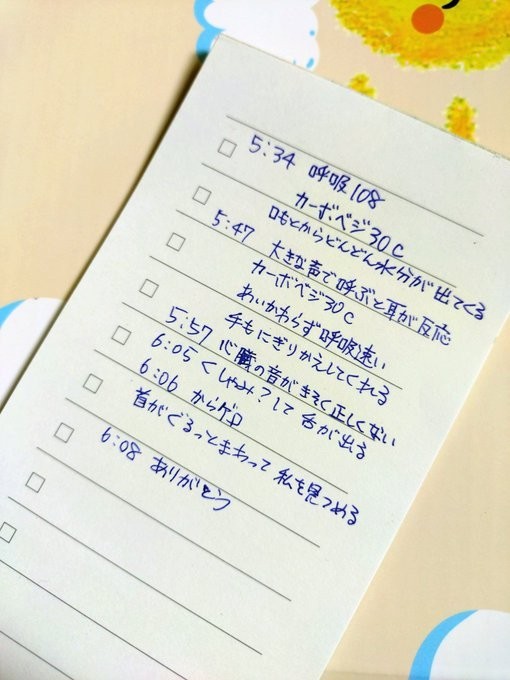 5:34 呼吸108
カーボベジ30C
口もとからどんどん水分が出てくる
5:47 大きな声で呼ぶと耳が反応
カーボベジ30C
あいかわらず呼吸速い
手もにぎりかえしてくれる
5:57 心臓の音がきそく正しくない
6:05 くしゃみ?して舌が出る
6:06 からゲロ
首がぐるっとまわって 私を見つめる
6:08 ありがとう